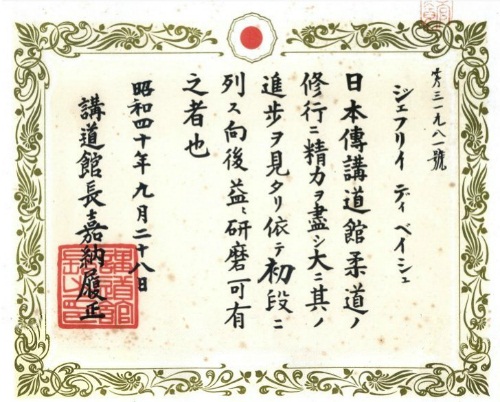 第三一九八一號
ジェフリイ ティ ベイシェ
日本傳講道館柔道ノ
修行ニ精力ヲ盡シ大ニ其ノ
進歩ヲ見タリ依テ初段ニ
列ス向後益〻研磨可有
之者也
昭和四十年九月二十八日
講道館長 嘉納履正